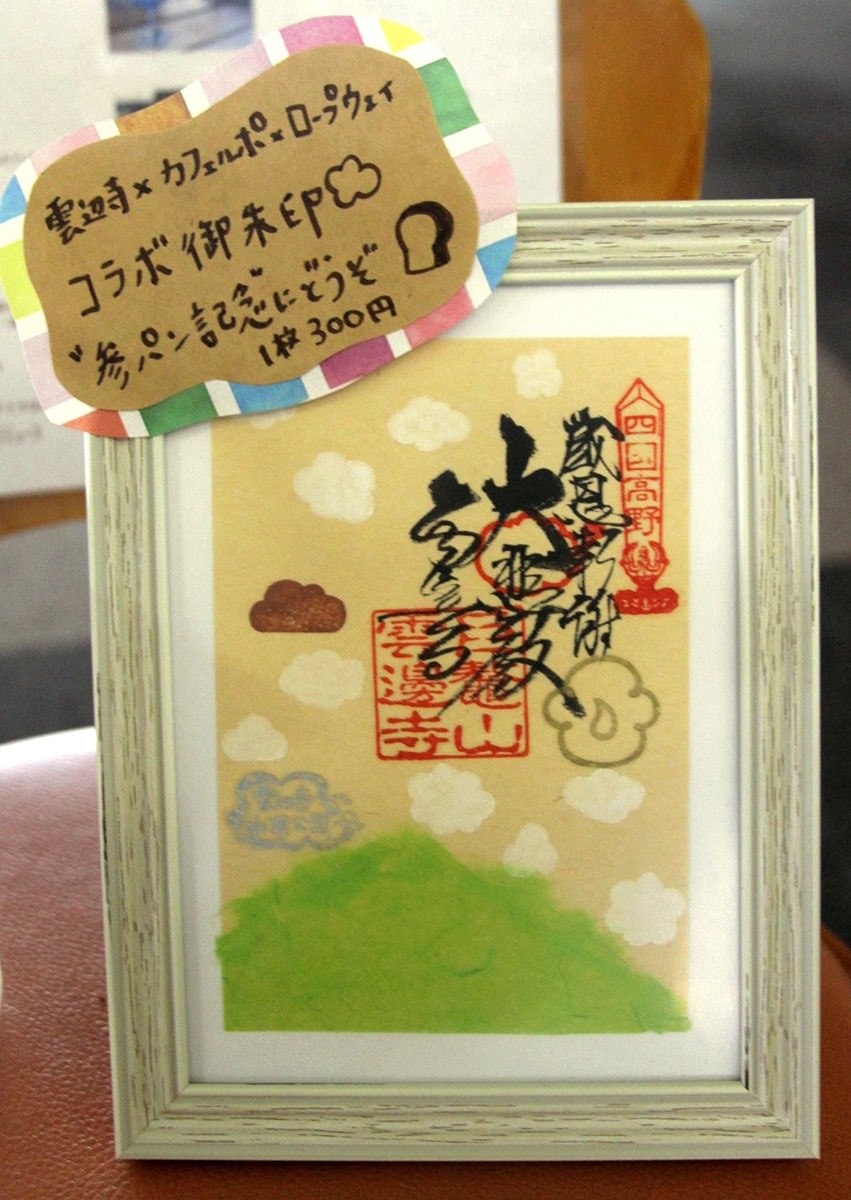 雲辺寺×カフェルポ×ロープウェイ
コラボ御朱印
"参パン記念"にどうぞ
1枚300円
四国高野
歳恩報謝
大悲殿
雲辺寺
巨鼇山
雲邊寺